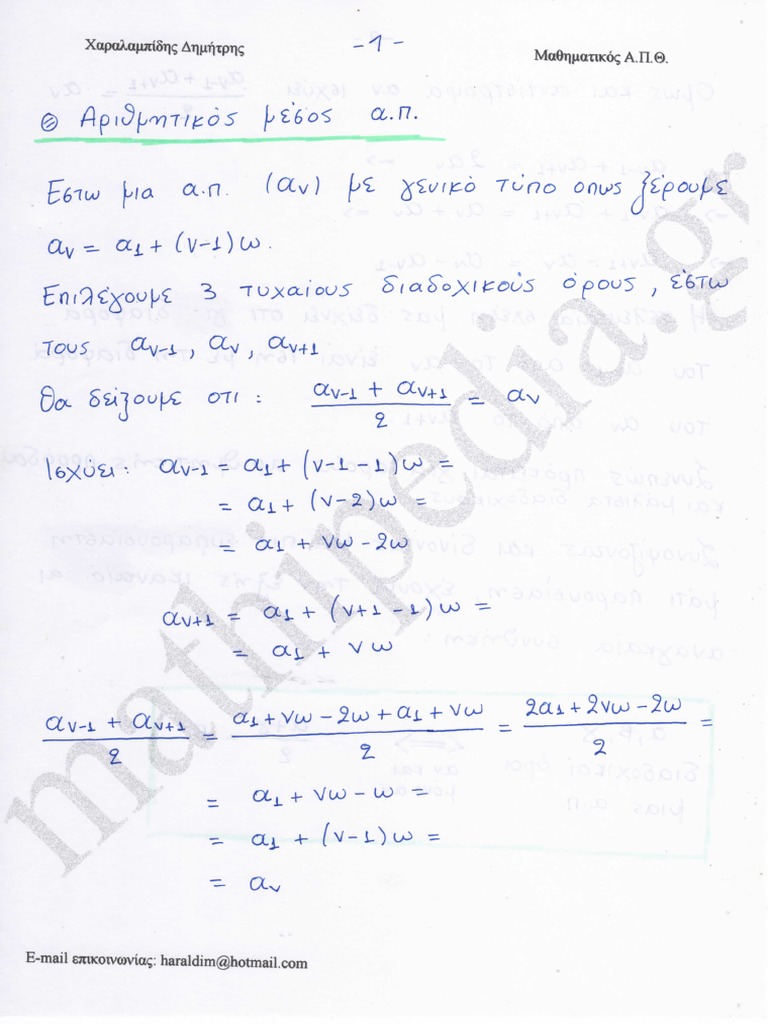 Χαραλαμπίδης Δημήτρης
-1-
Μαθηματικός Α.Π.Θ.
Αριθμητικός μέσος α.π.
Εστω μια α.π. (αν) με γενικό τύπο οπως ξέρουμε
αν = α1 + (ν-1)ω.
Επιλέγουμε 3 τυχαίους διαδοχικούς όρους, έστω
τους αν-1, αν, αν+1
Θα δείξουμε οτι: (αν-1 + αν+1)/2 = αν
Ισχύει: αν-1 = α1 + (ν-1-1)ω =
= α1 + (ν-2)ω =
= α1 + νω - 2ω
αν+1 = α1 + (ν+1-1)ω =
= α1 + νω
(αν-1 + αν+1)/2 = (α1 + νω - 2ω + α1 + νω)/2 = (2α1 + 2νω - 2ω)/2 =
= α1 + νω - ω =
= α1 + (ν-1)ω =
= αν
mathipedia.gr
E-mail επικοινωνίας: haraldim@hotmail.com